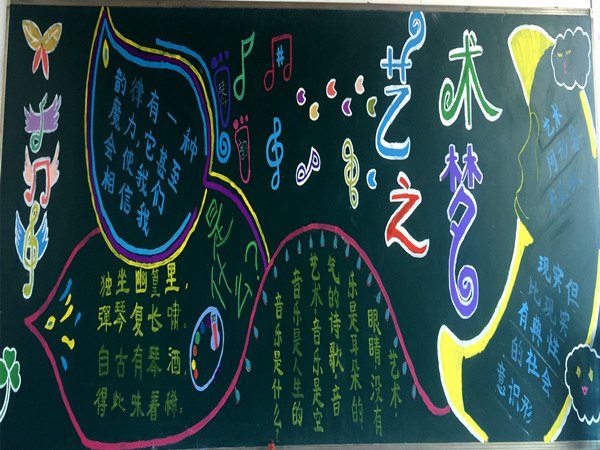 艺术
之梦
韵律有一种
魔力,它甚至
会使我们
相信我
独坐幽篁里,
弹琴复长啸
自古有琴酒
得此味者稀.
音乐是什么?
音乐是人生的
艺术,音乐是空
气的诗歌音
乐是耳朵的
眼睛没有
艺术.
艺术
现实但
比现实
有典性
的社会
意识形